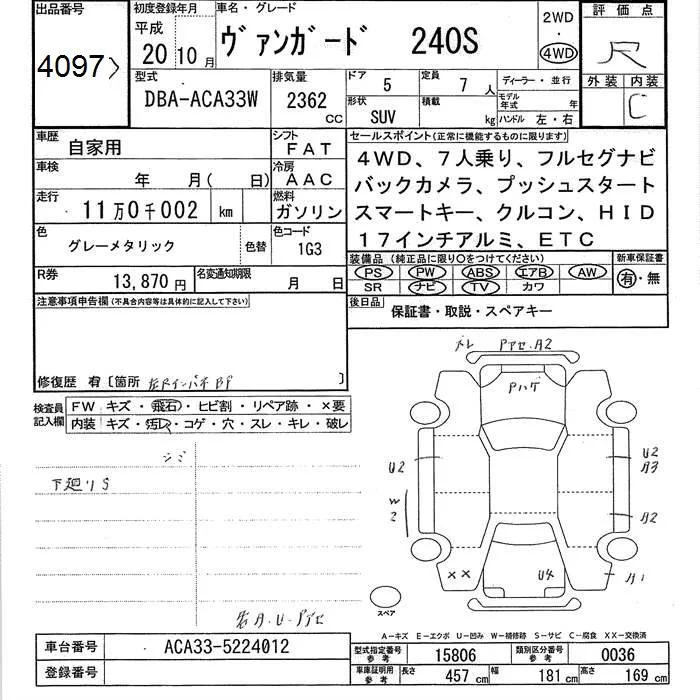 出品番号 初度登録年月 車名・グレード 2WD・4WD 評価点
4097 平成 20 10月 ヴァンガード 240S R
型式 排気量 ドア 5 定員 7人 ディーラー・並行 外装 内装
DBA-ACA33W 2362 cc 形状 SUV 積載 kg モデル年式 年 ハンドル 左・右 C
車歴 自家用 シフト FAT セールスポイント(正常に機能するものに限ります)
車検 年 月( 日) 冷房 AAC 4WD、7人乗り、フルセグナビ
走行 11万0千002 km 燃料 ガソリン バックカメラ、プッシュスタート
色 グレーメタリック 色替 色コード 1G3 スマートキー、クルコン、HID
17インチアルミ、ETC
R券 13,870円 名変通知期限 月 日 装備品(純正品に限り○をつけてください) 新車保証書
PS PW ABS エアB AW 有・無
SR ナビ TV カワ
注意事項申告欄(不具合内容等は具体的に記入して下さい) 後日品 保証書・取説・スペアキー
修復歴 有〔箇所 〕
検査員記入欄 FW キズ・飛石・ヒビ割・リペア跡・×要
内装 キズ・汚レ・コゲ・穴・スレ・キレ・破レ
ズレ Pアセ.A2
Pハゲ
ジミ
下廻りS
U2 U2 A3
W2 A2
×× U4 A1
スペア
A-キズ E-エクボ U-凹み W-補修跡 S-サビ C-腐食 XX-交換済
車台番号 ACA33-5224012 型式指定番号参考 15806 類別区分番号参考 0036
登録番号 車庫証明用参考 長さ 457cm 幅 181cm 高さ 169cm